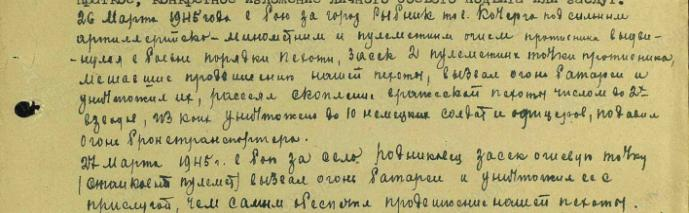 краткое, конкретное изложение личного боевого подвига или заслуг.
26 марта 1945 года в бою за город Рыбник т-щ. Кочерга под сильным
артиллерийско-минометным и пулеметным огнем противника выдви-
нулся в боевы порядки пехоты, засек 2 пулеметных точки противника,
мешавшие продвижению нашей пехоты, вызвал огонь батареи и
уничтожил их, рассеял скопление вражеской пехоты числом до 2х
взводов, из коих уничтожено до 10 немецких солдат и офицеров, подавил
огонь бронетранспортера.
27 марта 1945 г. в бою за село родниковец засек огневую точку
(станковый пулемет) вызвал огонь батареи и уничтожил ее с
прислугой, чем самым обеспечил продвижение нашей пехоты.